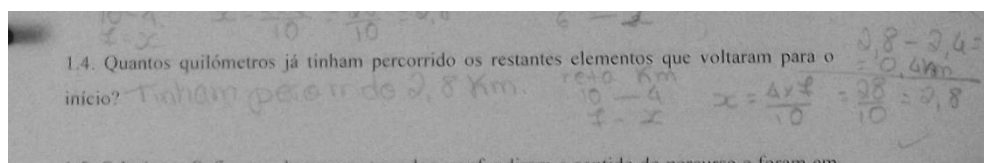 10 - 4
7 - x
10
10
6
1.4. Quantos quilómetros já tinham percorrido os restantes elementos que voltaram para o
início? Tinham percorrido 2,8 Km.
reta Km
10 — 4
7 - x
x = 4x7/10 = 28/10 = 2,8
2,8 - 2,4 =
= 0,4km